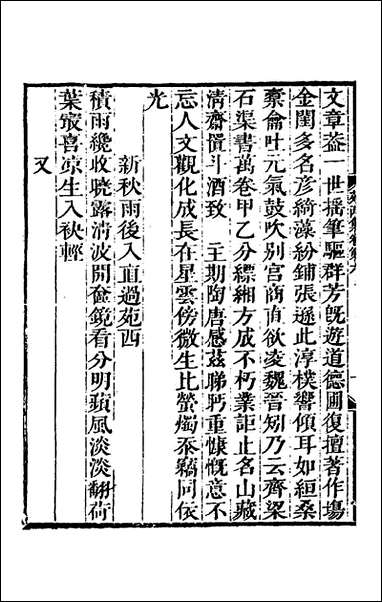 文章蓋一世搖筆驅群芳旣遊道德圃復擅著作塲
金閨多名彦綺藻紛鋪張遜此淳樸響傾耳如絙桑
橐侖吐元氣鼓吹别宫商直欲凌魏晉矧乃云齊梁
石渠書萬卷甲乙分縹緗方成不朽業詎止名山藏
清齋慣斗酒致　主期陶唐感茲睇眄重慷慨意不
忘人文觀化成長在星雲傍微生比螢燭忝竊同依
光
新秋雨後入直過苑西
積雨纔收曉露清波開奩鏡看分明蘋風淡淡翻荷
葉最喜凉生入袂輕
又